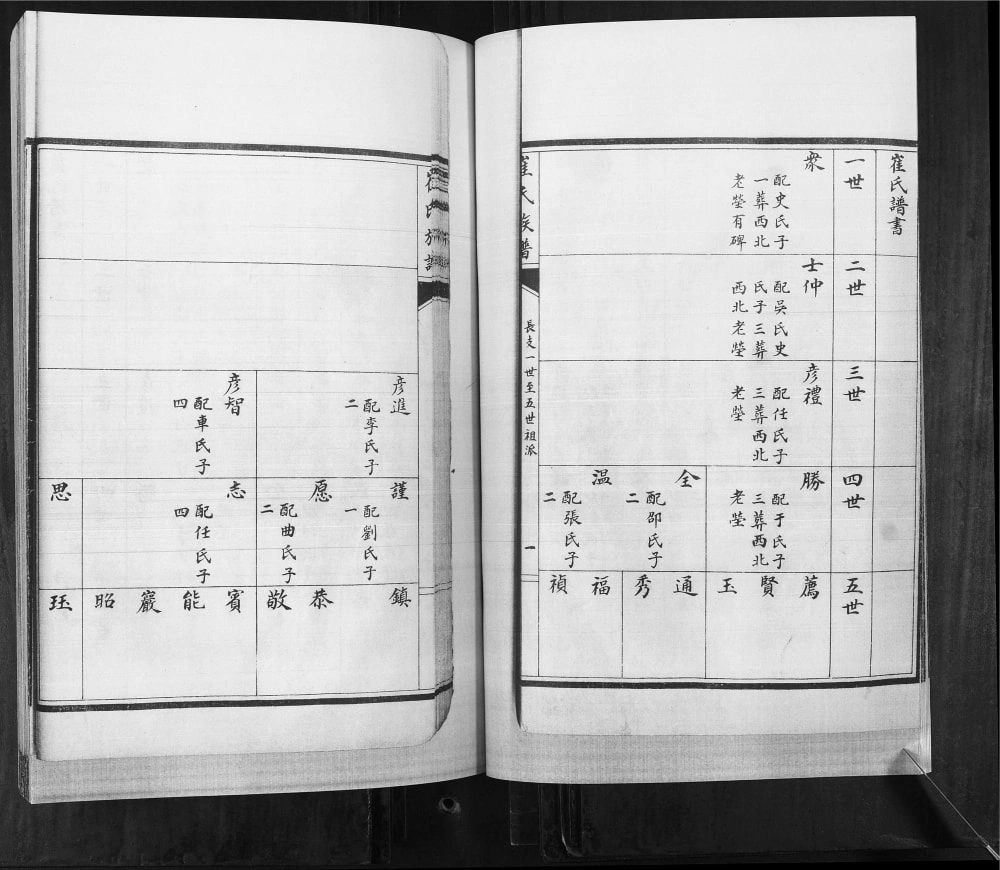 崔氏譜書
一世
衆
配史氏子
一葬西北
老塋有碑
二世
士仲
配吳氏史
氏子三葬
西北老塋
三世
彦禮
配任氏子
三葬西北
老塋
四世
勝
配于氏子
三葬西北
老塋
全
配邵氏子
二
温
配張氏子
二
五世
薦
賢
玉
通
秀
福
禎
崔氏族譜
長支一世至五世祖派
一
崔氏族譜
彦進
配李氏子
二
彦智
配車氏子
四
謹
配劉氏子
一
愿
配曲氏子
二
志
配任氏子
四
思
鎮
恭
敬
賓
能
巖
昭
珏